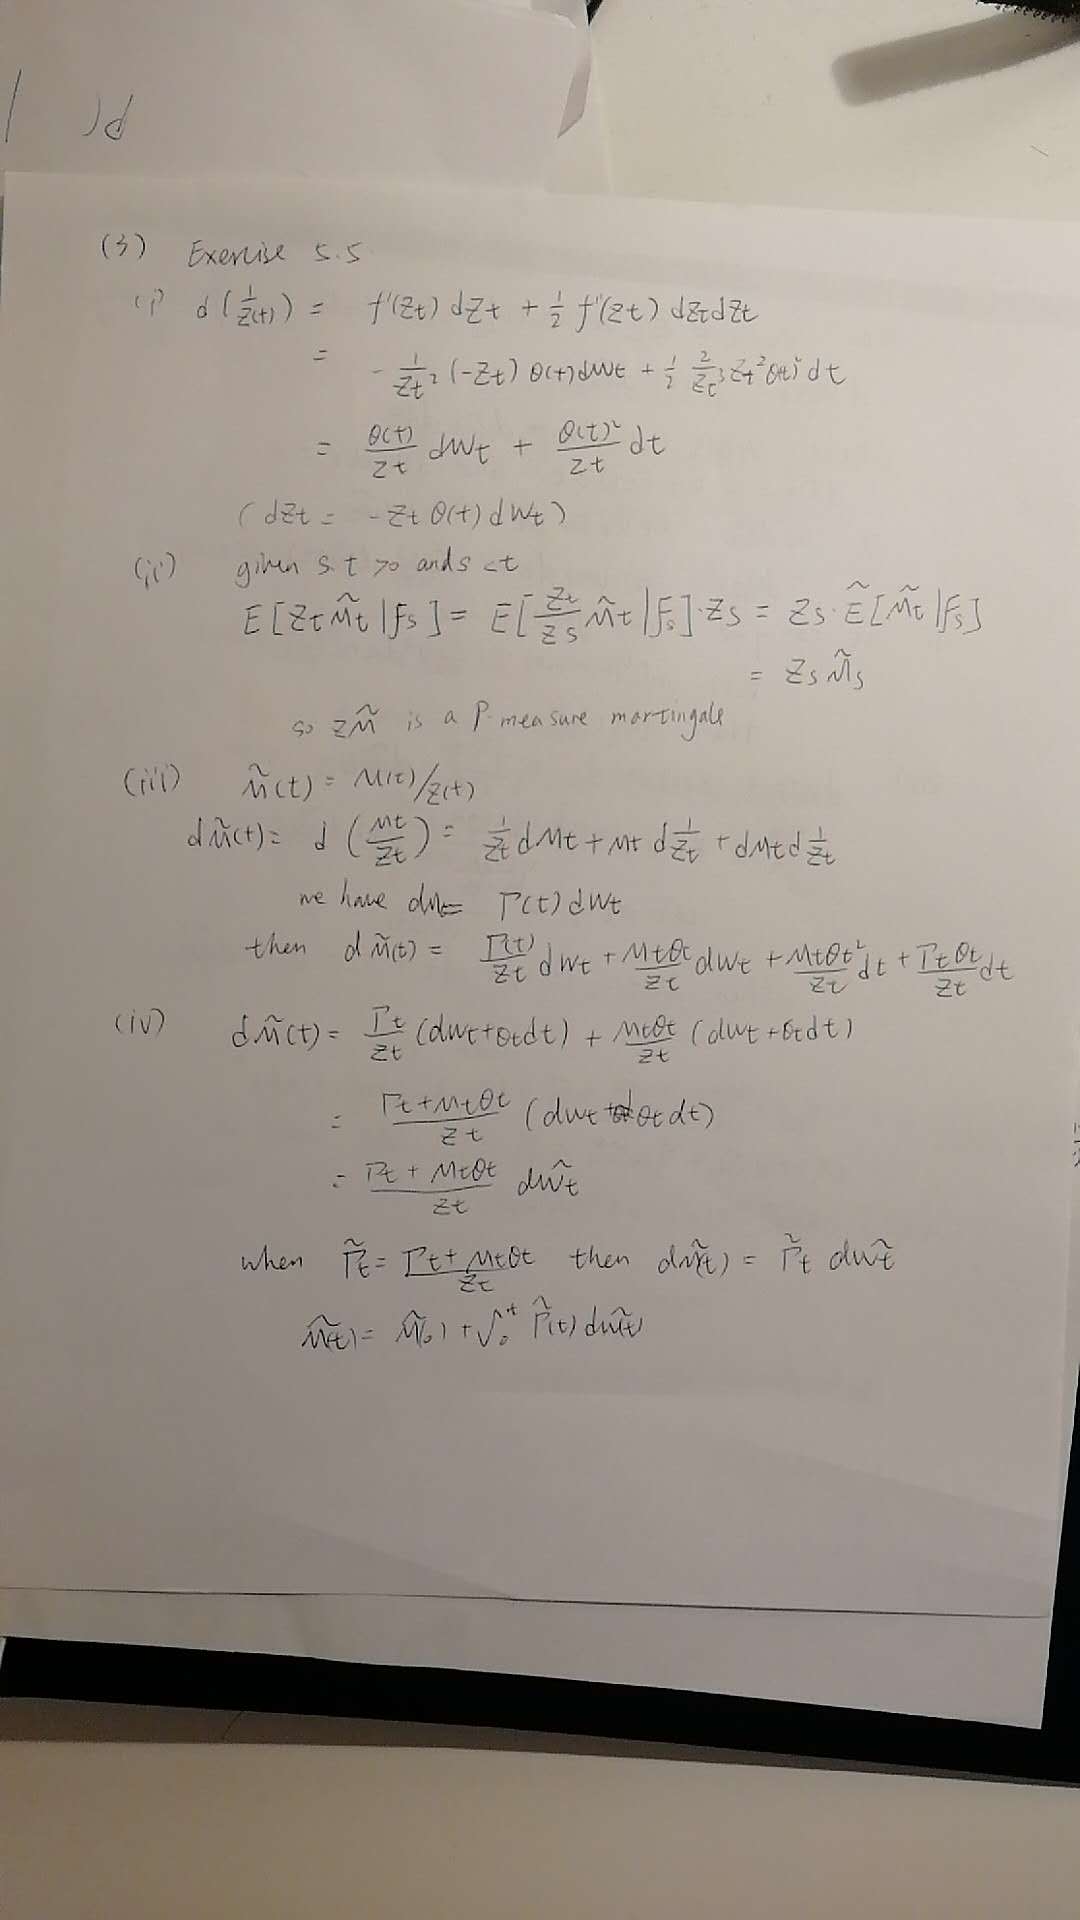 (3) Exercise 5.5
(i) d(1/Z(t)) = f'(Zt) dZt + 1/2 f''(Zt) dZt dZt
= -1/Zt² (-Zt) θ(t) dWt + 1/2 2/Zt³ Zt² θ(t)² dt
= θ(t)/Zt dWt + θ(t)²/Zt dt
(dZt = -Zt θ(t) dWt)
(ii) given s.t >0 and s<t
E[Zt M̃t|Fs] = E[Zt/Zs M̃t|Fs]·Zs = Zs·Ẽ[M̃t|Fs]
= Zs M̃s
so ZM̃ is a P-measure martingale
(iii) M̃(t) = M(t)/Z(t)
dM̃(t) = d(Mt/Zt) = 1/Zt dMt + Mt d 1/Zt + dMt d 1/Zt
we have dMt = Γ(t) dWt
then dM̃(t) = Γ(t)/Zt dWt + Mtθt/Zt dWt + Mtθt²/Zt dt + Γtθt/Zt dt
(iv) dM̃(t) = Γt/Zt (dWt+θtdt) + Mtθt/Zt (dWt+θtdt)
= Γt+Mtθt/Zt (dWt + θt dt)
= Γt + Mtθt/Zt dW̃t
when Γ̃t = Γt+Mtθt/Zt then dM̃(t) = Γ̃t dW̃t
M̃(t) = M̃(0) + ∫₀ᵗ Γ̃(t) dW̃(t)